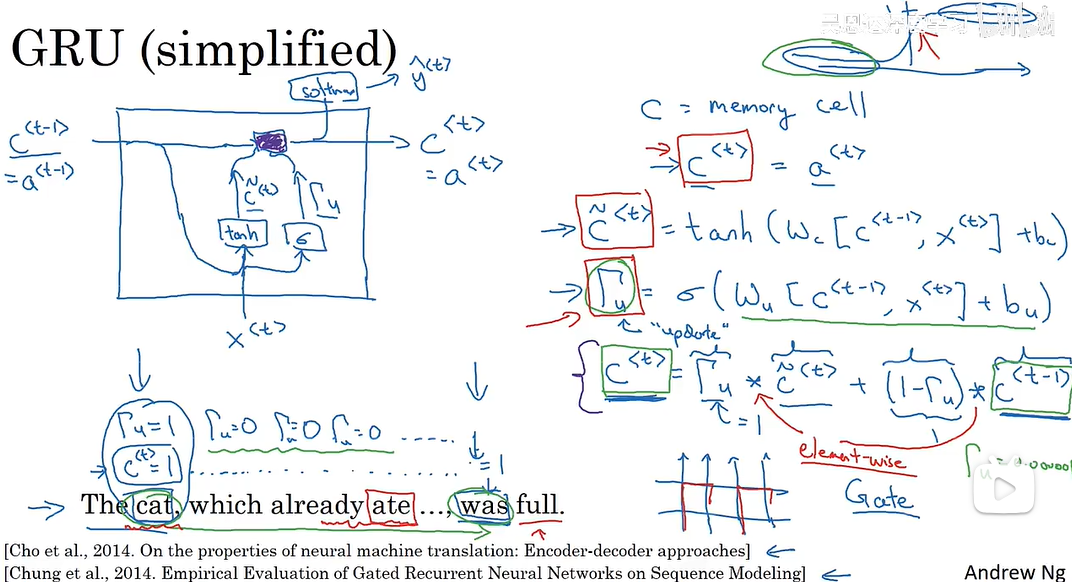 GRU (simplified)
it
softmax → ŷ<t>
c<t-1>
= a<t-1>
c<t>
= a<t>
c̃<t>
Γu
tanh
σ
x<t>
C = memory cell
→ c<t> = a<t>
→ c̃<t> = tanh (Wc [c<t-1>, x<t>] + bc)
→ Γu = σ (Wu [c<t-1>, x<t>] + bu)
"update"
c<t> = Γu * c̃<t> + (1-Γu) * c<t-1>
= 1
element-wise
Gate
Γu=1 Γu=0 Γu=0 Γu=0 .....
c<t>=1 ............ =1
→ The cat, which already ate ..., was full.
[Cho et al., 2014. On the properties of neural machine translation: Encoder-decoder approaches] ←
[Chung et al., 2014. Empirical Evaluation of Gated Recurrent Neural Networks on Sequence Modeling] ←
Andrew Ng